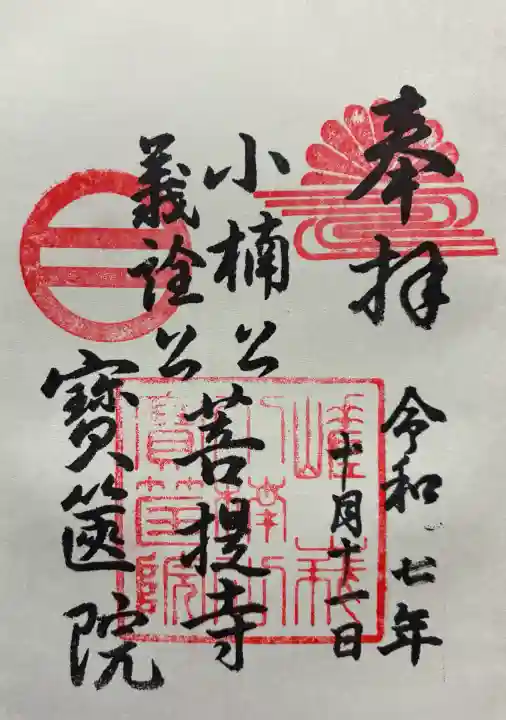 奉拝
令和七年
十月十一日
小楠公
義詮公
菩提寺
寶篋院